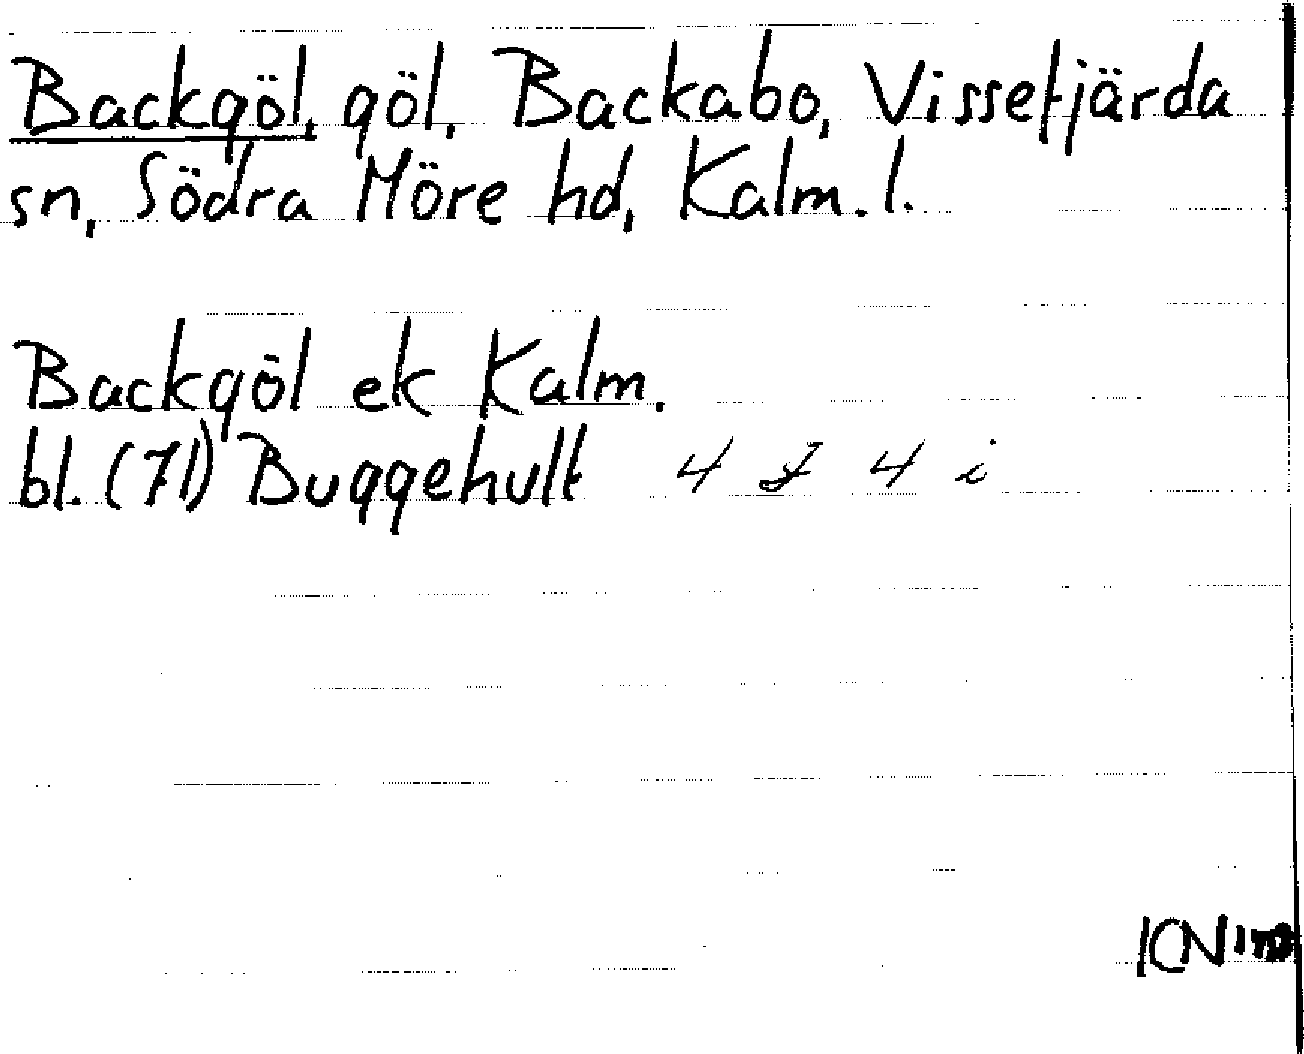 Backgöl, göl, Backabo, Vissefjärda
sn, Södra Möre hd, Kalm. l.
Backgöl ek Kalm.
bl. (71) Buggehult 4 J 4 i